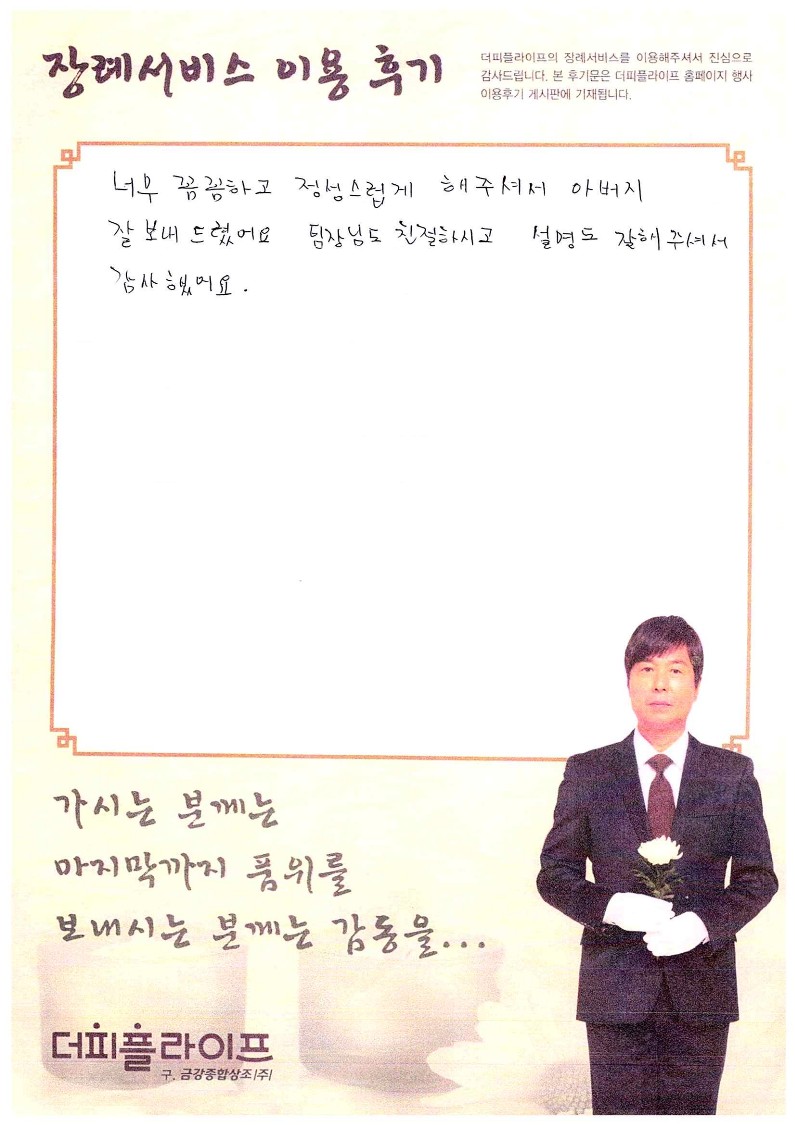 장례서비스 이용 후기
더피플라이프의 장례서비스를 이용해주셔서 진심으로
감사드립니다. 본 후기문은 더피플라이프 홈페이지 행사
이용후기 게시판에 기재됩니다.
너무 꼼꼼하고 정성스럽게 해주셔서 아버지
잘 보내 드렸어요 팀장님도 친절하시고 설명도 잘해주셔서
감사했어요.
가시는 분께는
마지막까지 품위를
보내시는 분께는 감동을...
더피플라이프
구. 금강종합상조(주)